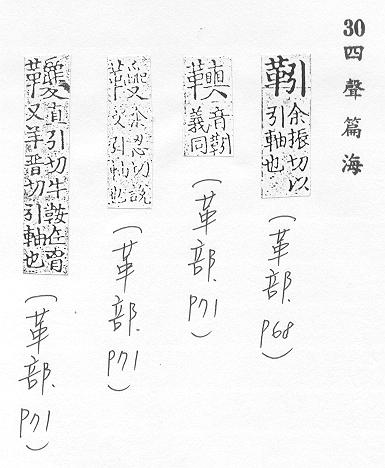 30 四聲篇海
靷 余振切以
引軸也
(革部. P68)
音靷
義同
(革部. P71)
余忍切說
文引軸也
(革部. P71)
直引切牛鞍在胷
又羊晋切引軸也
(革部. P71)